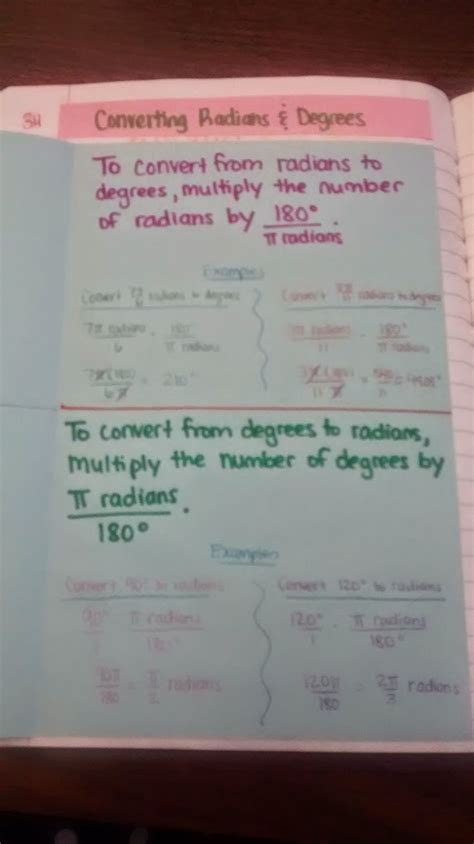 34
Converting Radians & Degrees
To convert from radians to
degrees, multiply the number
of radians by 180°/π radians.
Examples
Convert 7π/6 radians to degrees
7π radians/6 · 180/π radians
7π(180)/6π = 210°
Convert 3π/11 radians to degrees
3π radians/11 · 180°/π radians
3π(180)/11π = 540/11
To convert from degrees to radians,
multiply the number of degrees by
π radians/180°.
Examples
Convert 90° to radians
90°/1 · π radians/180°
90π/180 = π/2 radians
Convert 120° to radians
120°/1 · π radians/180°
120π/180 = 2π/3 radians